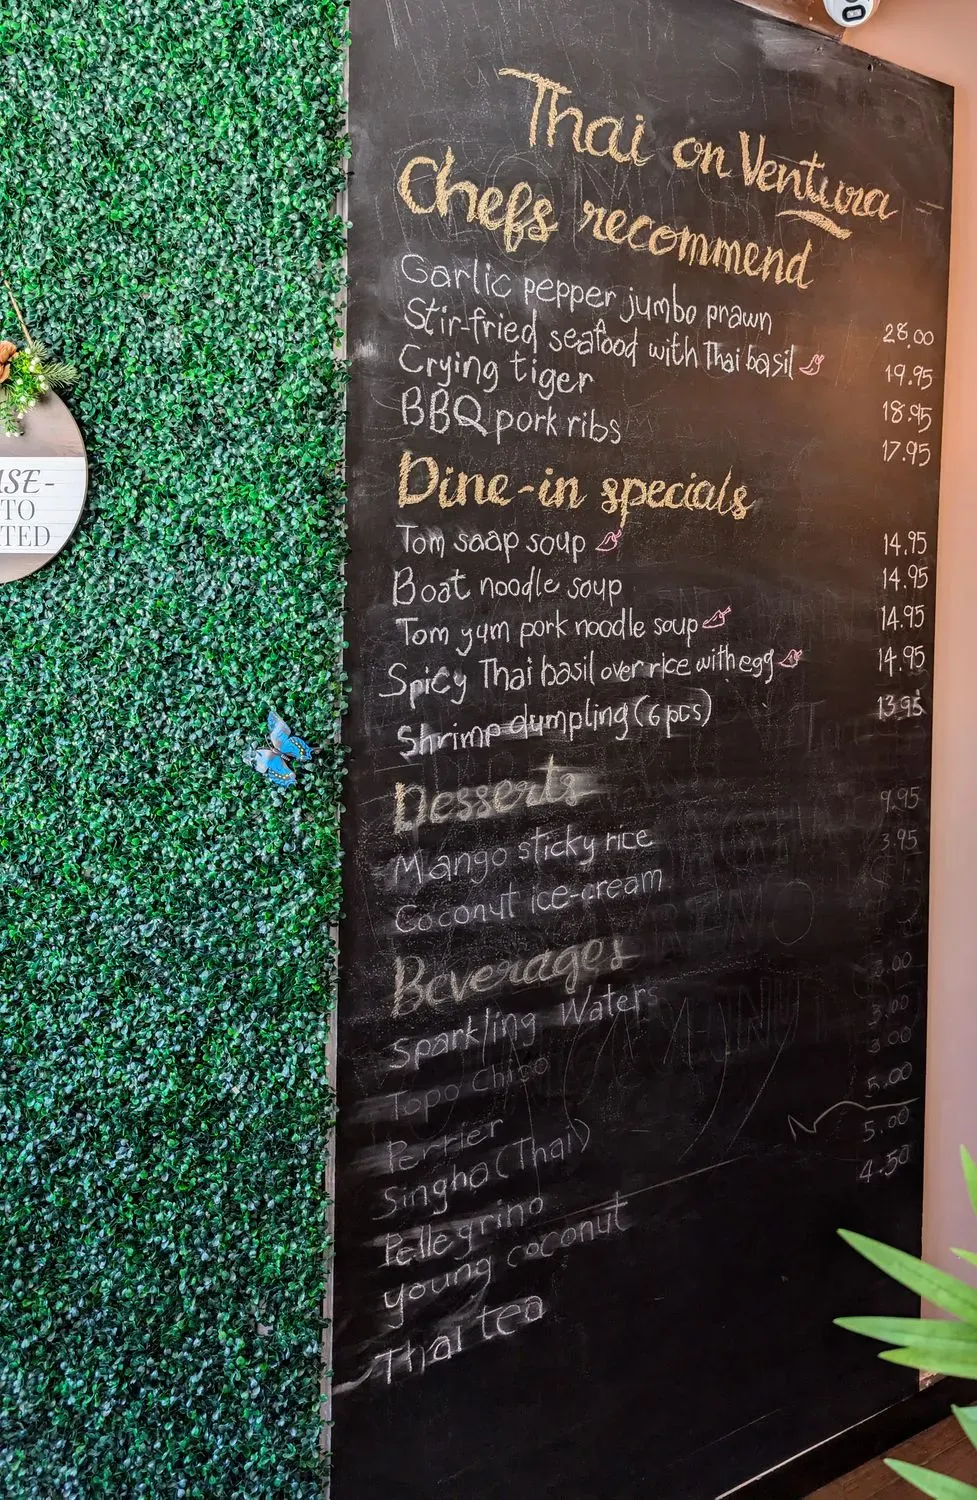 Thai on Ventura
Chefs recommend
Garlic pepper jumbo prawn 28.00
Stir-fried seafood with Thai basil 19.95
Crying tiger 18.95
BBQ pork ribs 17.95
Dine-in specials
Tom saap soup 14.95
Boat noodle soup 14.95
Tom yum pork noodle soup 14.95
Spicy Thai basil over rice with egg 14.95
Shrimp dumpling (6 pcs) 13.95
Desserts
Mango sticky rice 9.95
Coconut ice-cream 3.95
Beverages
Sparkling Waters
Topo Chico 3.00
Perrier 3.00
Singha (Thai) 3.00
Pellegrino 5.00
young coconut 5.00
Thai tea 4.50
ISE-
TO
TED